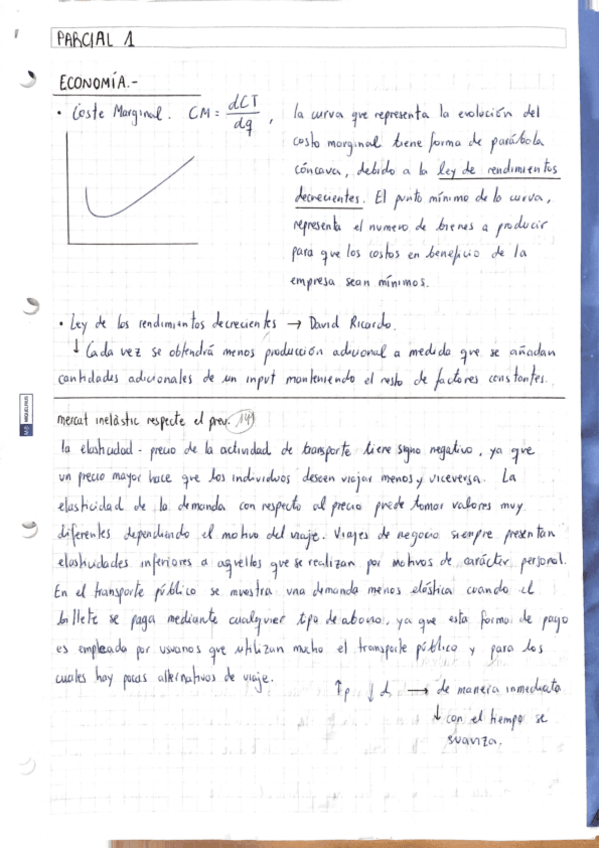 PARCIAL 1
ECONOMÍA.-
• Coste Marginal. CM = dCT / dq , la curva que representa la evolución del
costo marginal tiene forma de parábola
cóncava, debido a la ley de rendimientos
decrecientes. El punto mínimo de la curva,
representa el numero de bienes a producir
para que los costos en beneficio de la
empresa sean mínimos.
• Ley de los rendimientos decrecientes → David Ricardo.
↓ Cada vez se obtendrá menos producción adicional a medida que se añadan
cantidades adicionales de un input manteniendo el resto de factores constantes.
mercat inelàstic respecte el preu.
la elasticidad - precio de la actividad de transporte tiene signo negativo, ya que
un precio mayor hace que los individuos deseen viajar menos y viceversa. La
elasticidad de la demanda con respecto al precio puede tomar valores muy
diferentes dependiendo el motivo del viaje. Viajes de negocio siempre presentan
elasticidades inferiores a aquellos que se realizan por motivos de carácter personal.
En el transporte público se muestra una demanda menos elástica cuando el
billete se paga mediante cualquier tipo de abono, ya que esta forma de pago
es empleada por usuarios que utilizan mucho el transporte público y para los
cuales hay pocas alternativas de viaje.
↑p ↓d → de manera inmediata
↓ con el tiempo se
suaviza.
MIQUELRIUS